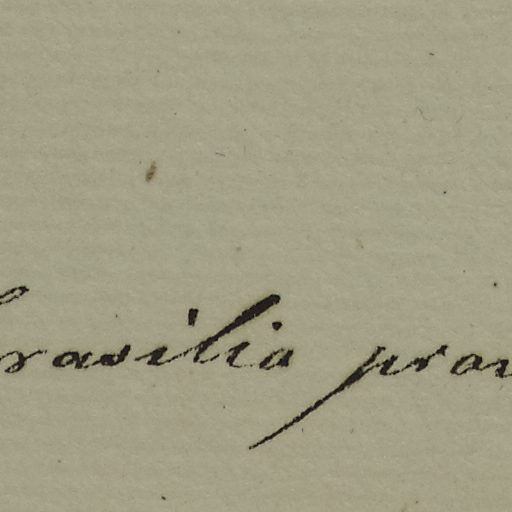 brasilia prov